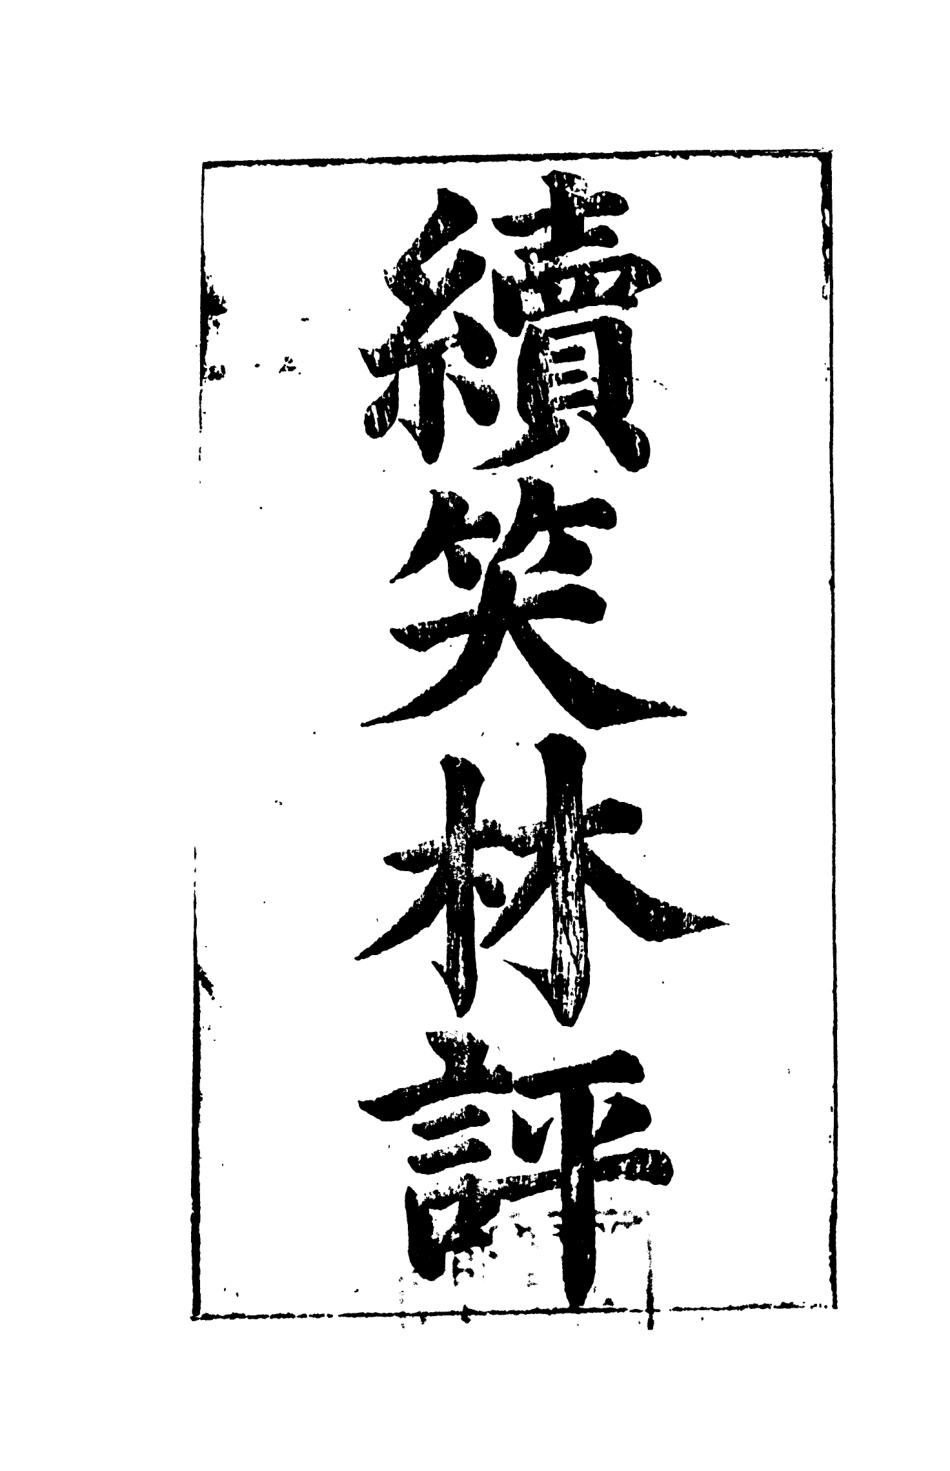 續笑林評